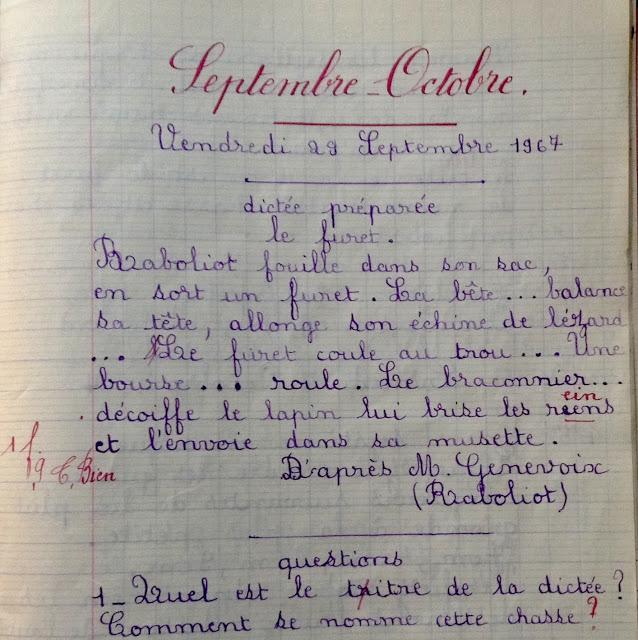 Septembre-Octobre.
Vendredi 29 Septembre 1967
dictée préparée
le furet.
Raboliot fouille dans son sac,
en sort un furet. La bête... balance
sa tête, allonge son échine de lézard
... Le furet coule au trou... Une
bourse... roule. Le braconnier...
ein
décoiffe le lapin lui brise les reins
et l'envoie dans sa musette.
1f.
9 T. Bien
D'après M. Genevoix
(Raboliot)
questions
1_ Quel est le titre de la dictée ?
Comment se nomme cette chasse ?